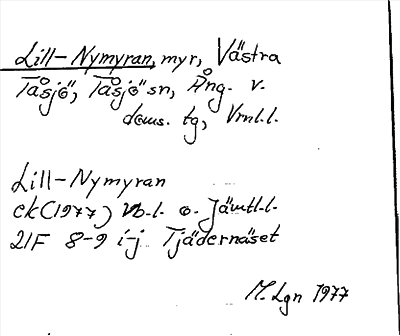 Lill-Nymyran, myr, Västra
Tåsjö, Tåsjö sn, Ång. v.
doms. tg, Vrnl.l.
Lill-Nymyran
ek(1977) Vb-l. o. Jämtl.l.
21F 8-9 i-j Tjädernäset
M. Lgn 1977